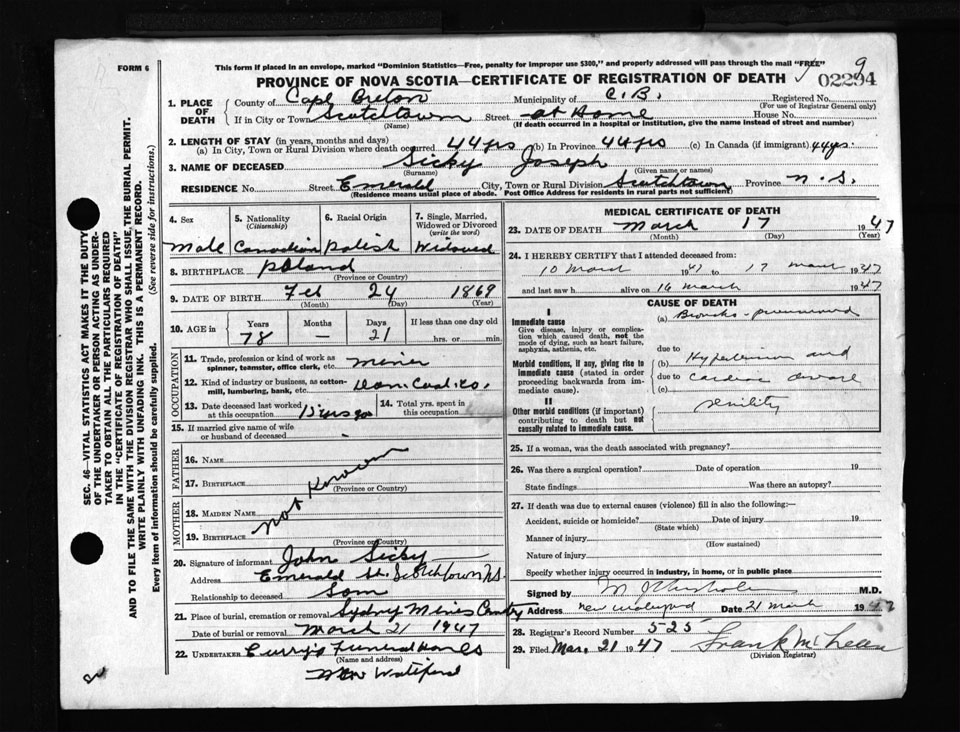 FORM 6
This form if placed in an envelope, marked "Dominion Statistics—Free, penalty for improper use $300," and properly addressed will pass through the mail "FREE"
PROVINCE OF NOVA SCOTIA—CERTIFICATE OF REGISTRATION OF DEATH
9
02294
1. PLACE OF DEATH
County of Cape Breton Municipality of C.B. Registered No.
(For use of Registrar General only)
If in City or Town Scotchtown Street at Home House No.
(Name) (If death occurred in a hospital or institution, give the name instead of street and number)
2. LENGTH OF STAY (in years, months and days)
(a) In City, Town or Rural Division where death occurred 44 yrs (b) In Province 44 yrs (c) In Canada (if immigrant) 44 yrs.
3. NAME OF DECEASED Sicky Joseph
(Surname) (Given name or names)
RESIDENCE No. Street Emerald City, Town or Rural Division Scotchtown Province N.S.
Residence means usual place of abode. Post Office Address for residents in rural parts not sufficient)
4. Sex
Male
5. Nationality (Citizenship)
Canadian
6. Racial Origin
Polish
7. Single, Married, Widowed or Divorced (write the word)
Widowed
8. BIRTHPLACE Poland
(Province or Country)
9. DATE OF BIRTH Feb 24 1869
(Month) (Day) (Year)
10. AGE in
Years Months Days If less than one day old
78 — 21 hrs. or min.
OCCUPATION
11. Trade, profession or kind of work as spinner, teamster, office clerk, etc. Miner
12. Kind of industry or business, as cotton-mill, lumbering, bank, etc. Dom Coal Co.
13. Date deceased last worked at this occupation 15 yrs ago
14. Total yrs. spent in this occupation
15. If married give name of wife or husband of deceased
FATHER
16. NAME
17. BIRTHPLACE
(Province or Country)
not Known
MOTHER
18. MAIDEN NAME
19. BIRTHPLACE
(Province or Country)
20. Signature of informant John Sicky
Address Emerald St. Scotchtown N.S.
Relationship to deceased Son
21. Place of burial, cremation or removal Sydney Mines Cemetry
Date of burial or removal March 21 1947
22. UNDERTAKER Curry's Funeral Homes
(Name and address)
New Waterford
MEDICAL CERTIFICATE OF DEATH
23. DATE OF DEATH March 17 1947
(Month) (Day) (Year)
24. I HEREBY CERTIFY that I attended deceased from:
10 March 1947 to 17 March 1947
and last saw h alive on 16 March 1947
CAUSE OF DEATH
I
Immediate cause
Give disease, injury or complication which caused death, not the mode of dying, such as heart failure, asphyxia, asthenia, etc.
(a) Broncho-pneumonia
due to
Morbid conditions, if any, giving rise to immediate cause (stated in order proceeding backwards from immediate cause).
(b) Hypertension and
due to cardiac
(c)
II
Other morbid conditions (if important) contributing to death but not causally related to immediate cause.
senility
25. If a woman, was the death associated with pregnancy?
26. Was there a surgical operation? Date of operation 19
State findings Was there an autopsy?
27. If death was due to external causes (violence) fill in also the following:
Accident, suicide or homicide? Date of injury 19
(State which)
Manner of injury
(How sustained)
Nature of injury
Specify whether injury occurred in industry, in home, or in public place
Signed by M.D.
Address New Waterford Date 21 March 1947
28. Registrar's Record Number 525
29. Filed Mar. 21 1947 Frank
(Division Registrar)
SEC. 46—VITAL STATISTICS ACT MAKES IT THE DUTY
OF THE UNDERTAKER OR PERSON ACTING AS UNDER-
TAKER TO OBTAIN ALL THE PARTICULARS REQUIRED
IN THE "CERTIFICATE OF REGISTRATION OF DEATH"
AND TO FILE THE SAME WITH THE DIVISION REGISTRAR WHO SHALL ISSUE, THE BURIAL PERMIT.
WRITE PLAINLY WITH UNFADING INK. THIS IS A PERMANENT RECORD.
Every item of information should be carefully supplied. (See reverse side for instructions.)